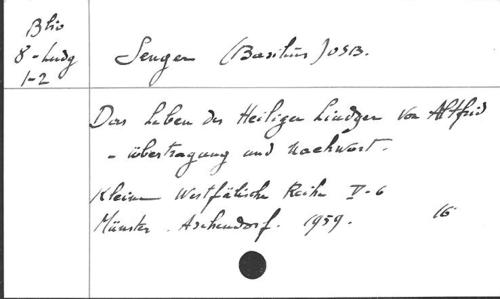 Blio
8-Ludg
1-2
Senger (Basilius) OSB.
Das Leben des Heiligen Liudger von Altfrid
- übertragung und Nachwort.
Kleine Westfälische Reihe V-6
Münster. Aschendorf. 1959. 16